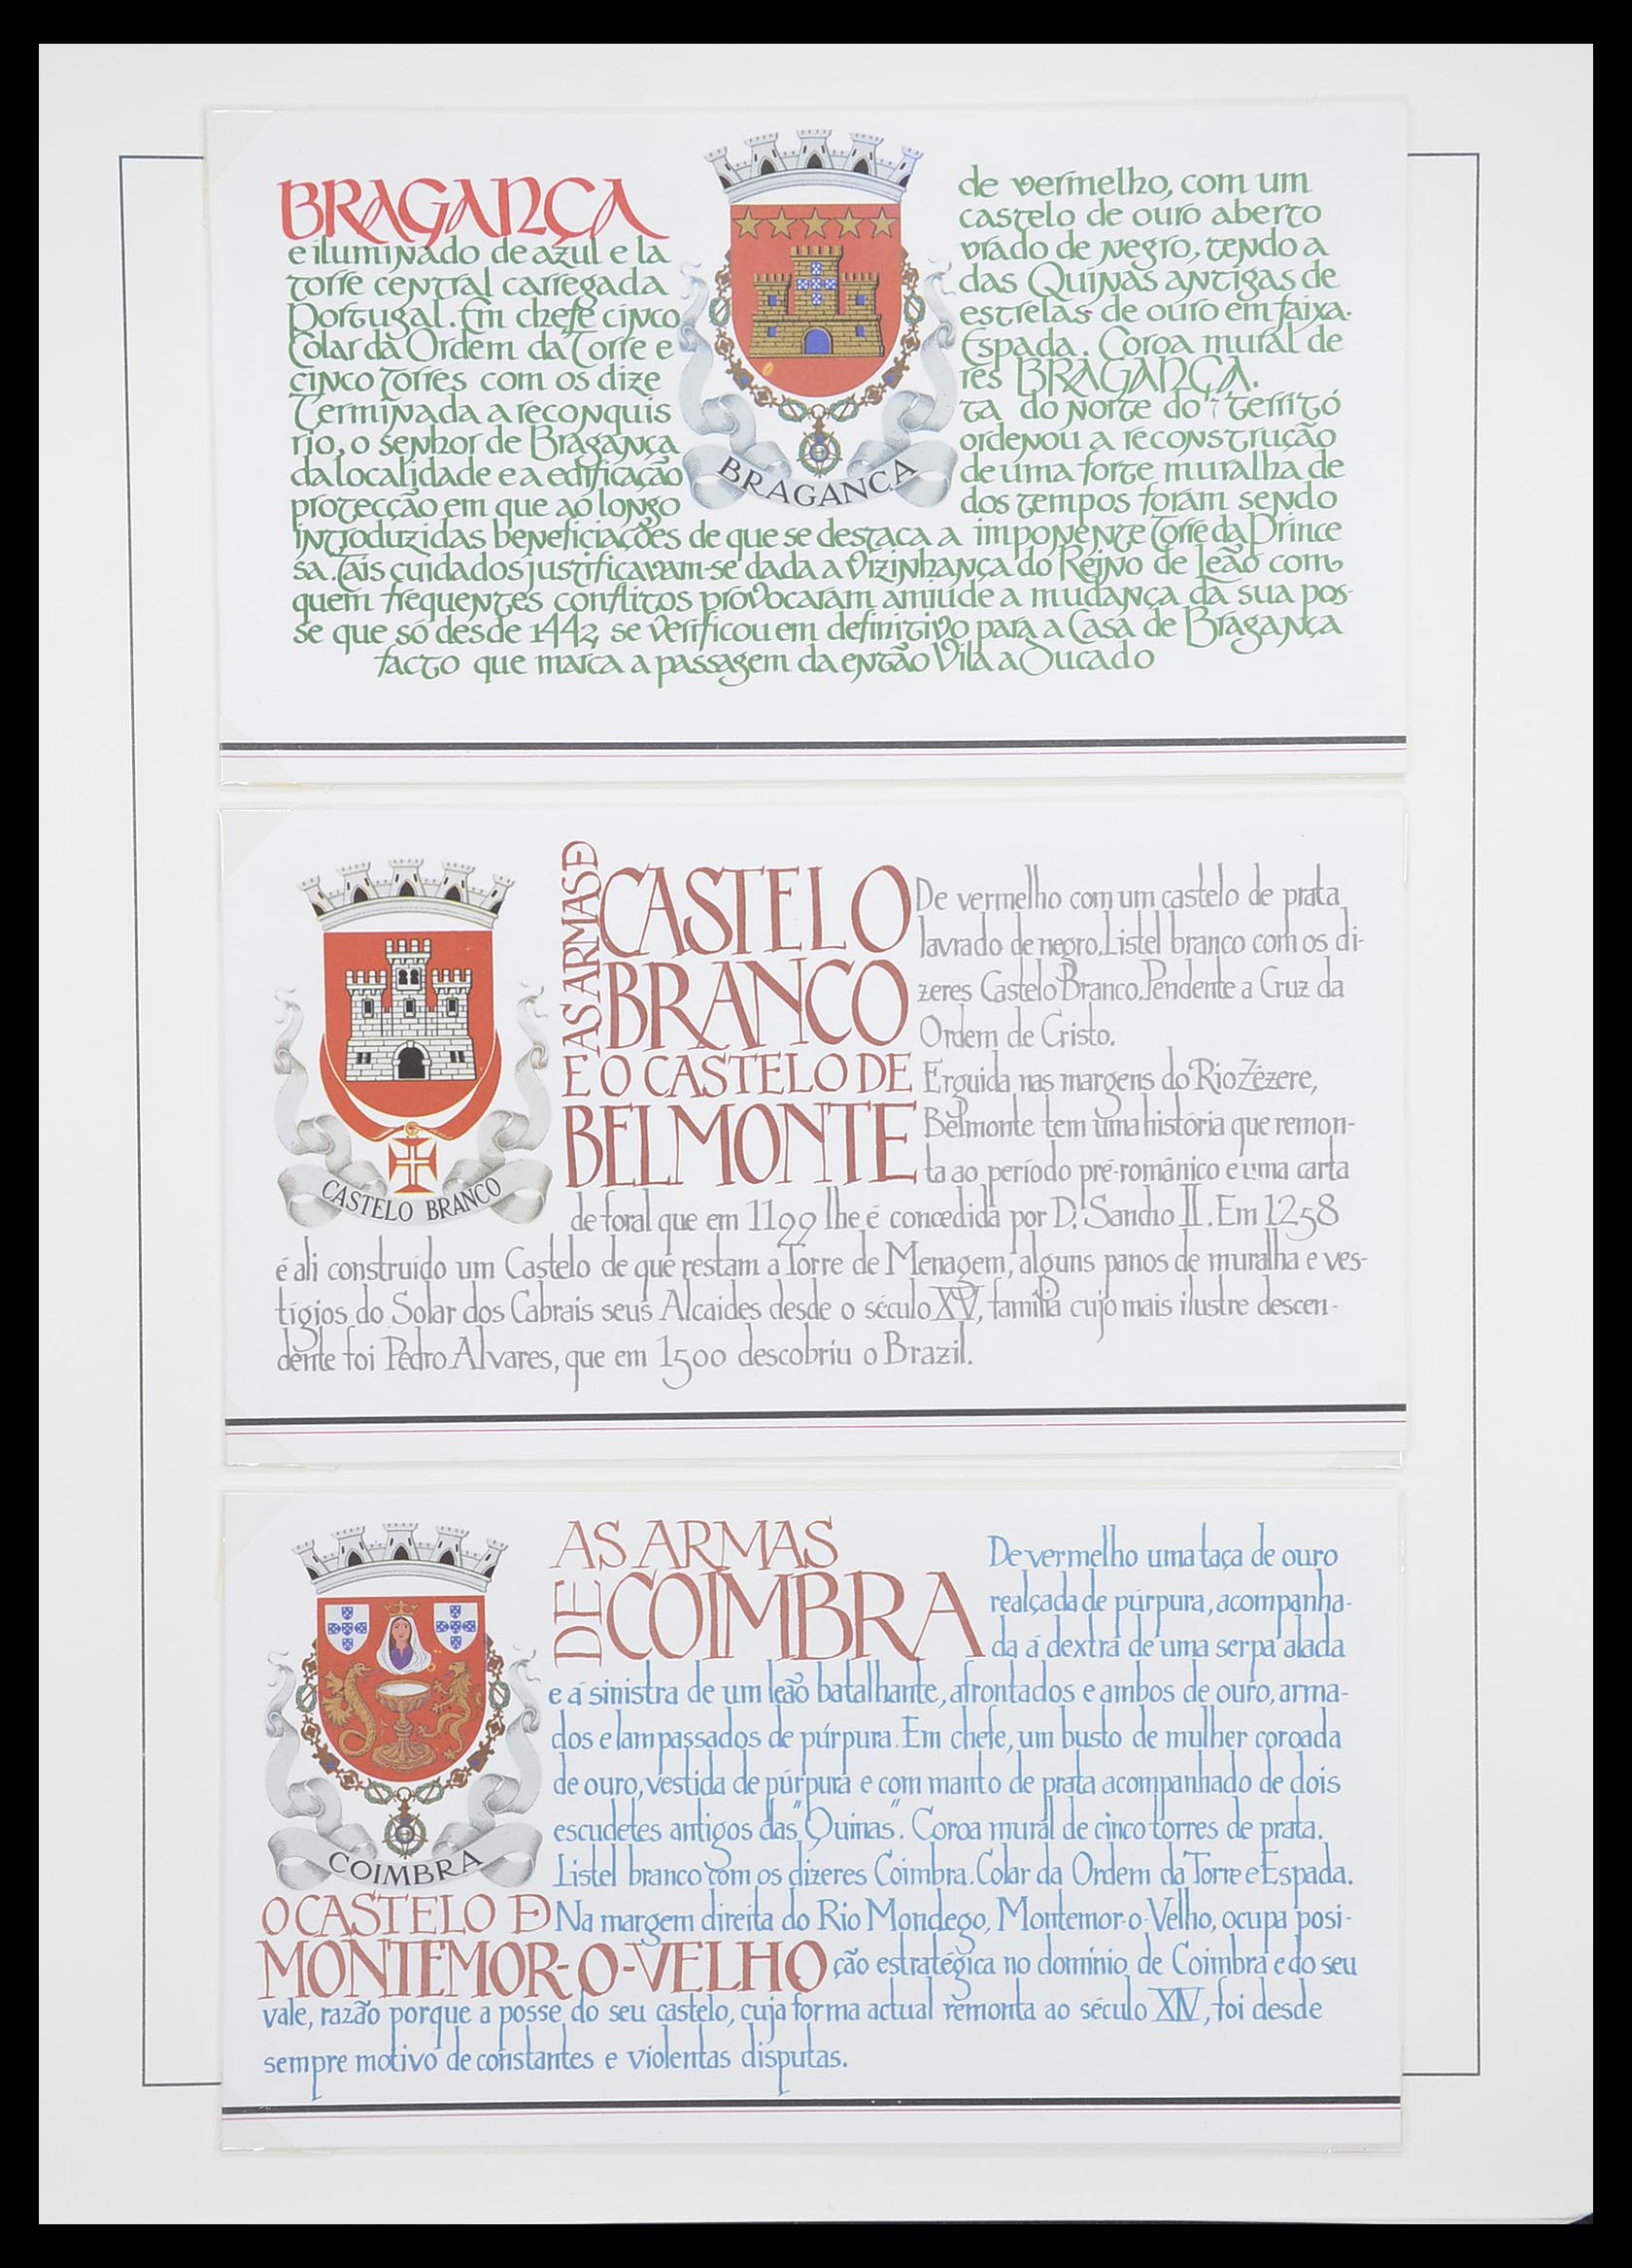 BRAGANÇA de vermelho, com um
castelo de ouro aberto
e iluminado de azul e la vrado de negro, tendo a
torre central carregada das Quinas antigas de
Portugal. Em chefe cinco estrelas de ouro em faixa.
Colar da Ordem da Torre e Espada. Coroa mural de
cinco torres com os dize res BRAGANÇA.
Terminada a reconquis ta do norte do territó
rio, o senhor de Bragança ordenou a reconstrução
da localidade e a edificação de uma forte muralha de
protecção em que ao longo dos tempos foram sendo
introduzidas beneficiações de que se destaca a imponente Torre da Prince
sa. Tais cuidados justificavam-se dada a vizinhança do Reino de Leão com
quem frequentes conflitos provocaram amiúde a mudança da sua pos-
se que só desde 1442 se verificou em definitivo para a Casa de Bragança
facto que marca a passagem da então Vila a Ducado
BRAGANÇA
AS ARMAS DE
CASTELO
BRANCO
E O CASTELO DE
BELMONTE
De vermelho com um castelo de prata
lavrado de negro. Listel branco com os di-
zeres Castelo Branco. Pendente a Cruz da
Ordem de Cristo.
Erguida nas margens do Rio Zêzere,
Belmonte tem uma história que remon-
ta ao período pré-românico e uma carta
de foral que em 1199 lhe é concedida por D. Sancho II. Em 1258
é ali construído um Castelo de que restam a Torre de Menagem, alguns panos de muralha e ves-
tígios do Solar dos Cabrais seus Alcaides desde o século XV, família cujo mais ilustre descen-
dente foi Pedro Alvares, que em 1500 descobriu o Brazil.
CASTELO BRANCO
AS ARMAS
DE COIMBRA
De vermelho uma taça de ouro
realçada de púrpura, acompanha-
da á dextra de uma serpa alada
e á sinistra de um leão batalhante, afrontados e ambos de ouro, arma-
dos e lampassados de púrpura. Em chefe, um busto de mulher coroada
de ouro, vestida de púrpura e com manto de prata acompanhado de dois
escudetes antigos das "Quinas". Coroa mural de cinco torres de prata.
Listel branco com os dizeres Coimbra. Colar da Ordem da Torre e Espada.
COIMBRA
O CASTELO DE
MONTEMOR-O-VELHO
Na margem direita do Rio Mondego, Montemor-o-Velho, ocupa posi-
ção estratégica no domínio de Coimbra e do seu
vale, razão porque a posse do seu castelo, cuja forma actual remonta ao século XIV, foi desde
sempre motivo de constantes e violentas disputas.